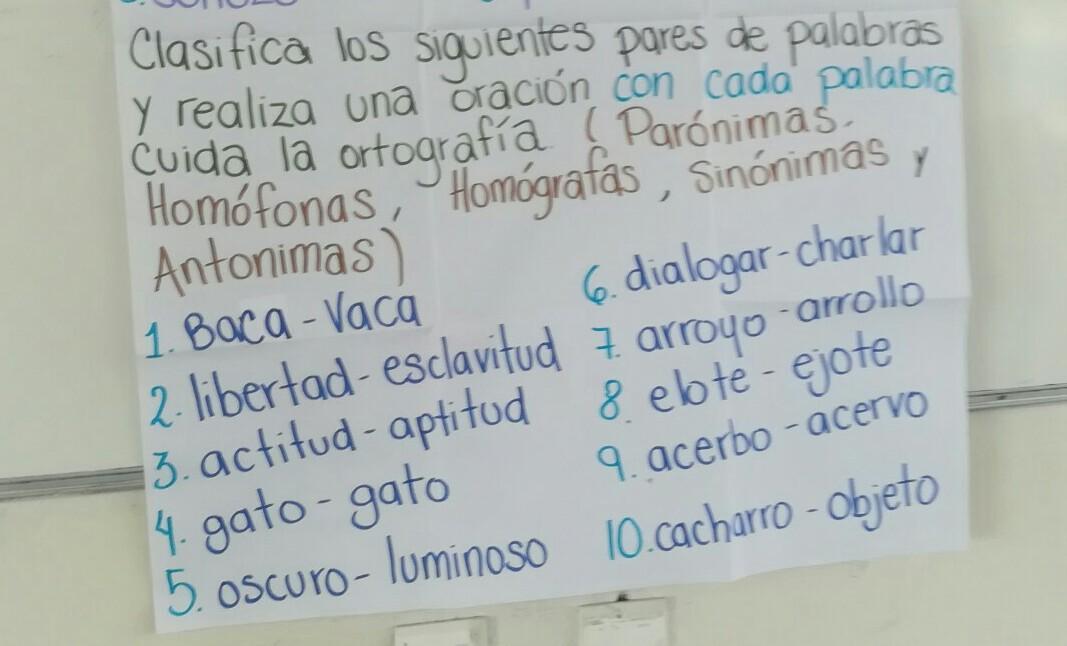 Clasifica los siguientes pares de palabras
y realiza una oración con cada palabra
Cuida la ortografía. (Parónimas.
Homófonas, Homógrafas, Sinónimas y
Antonimas)
1. Baca - Vaca
2. libertad - esclavitud
3. actitud - aptitud
4. gato - gato
5. oscuro - luminoso
6. dialogar - charlar
7. arroyo - arrollo
8. elote - ejote
9. acerbo - acervo
10. cacharro - objeto